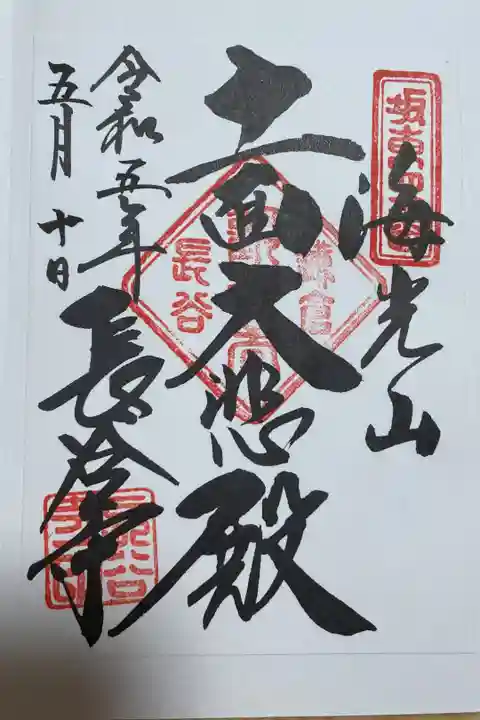 坂東四番
海光山
十一面大悲殿
鎌倉
長谷
令和五年
五月十日
長谷寺